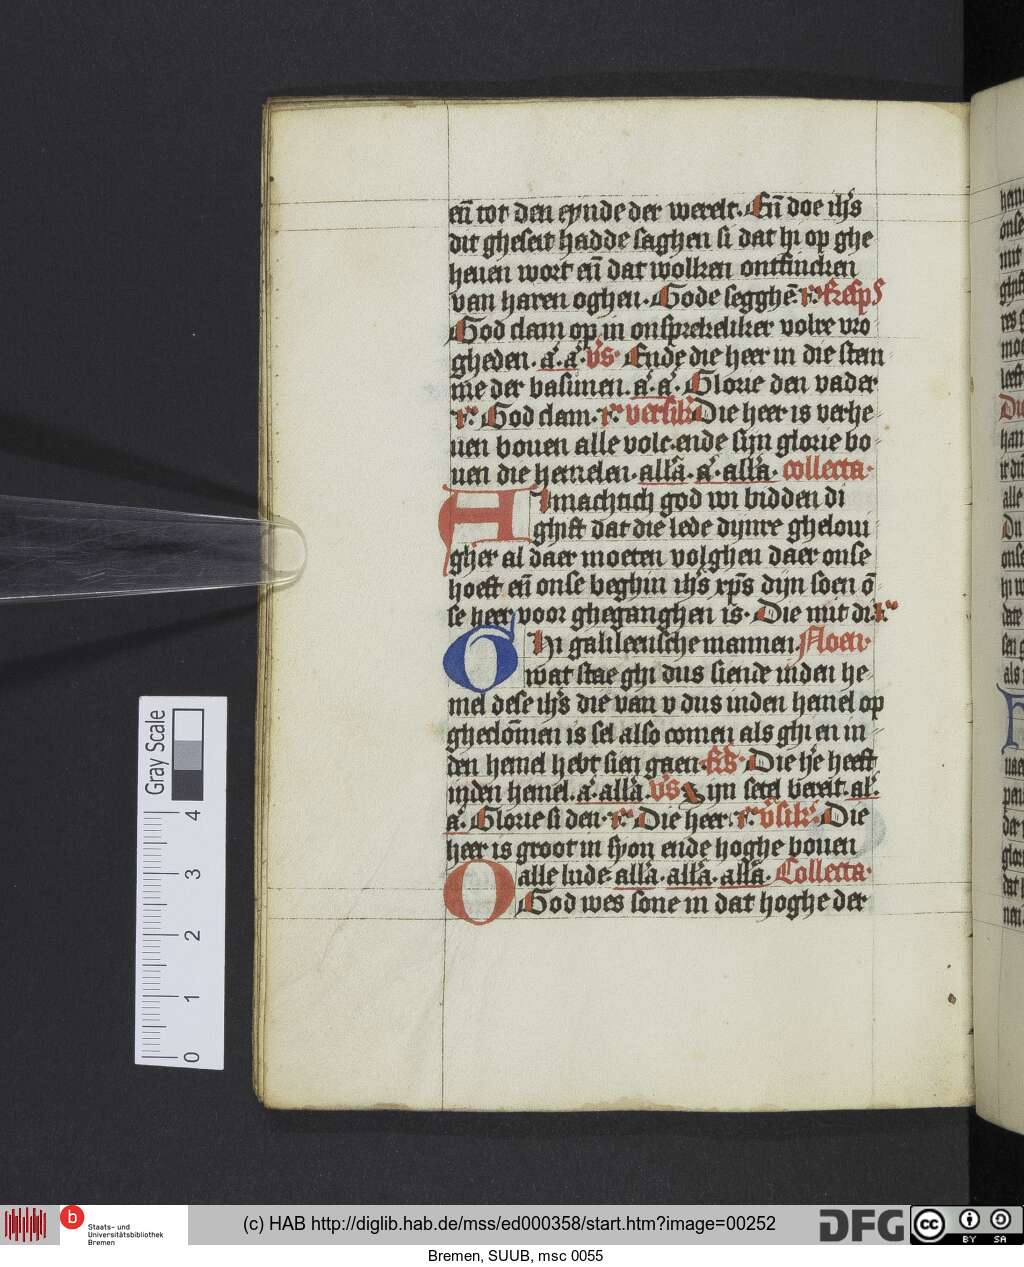 eñ tot den eynde der werelt. Eñ doe ih's
dit gheseit hadde saghen si dat hi op ghe
heuen wort eñ dat wolken ontfincken
van haren oghen. Gode segghē. r. resp̄s
God clam op in onsprekeliker volre vro
gheden. a'. a'. v's. Ende die heer in die stem
me der basunen. a'. a'. Glorie den vader
r. God clam. r. versik'. Die heer is verhe
uen bouen alle volc. ende sijn glorie bo
uen die hemelen. all'a. a'. all'a. collecta.
Almachtich god wi bidden di
ghift dat die lede dijnre gheloui
gher al daer moeten volghen daer onse
hoeft eñ onse beghin ih's xp̄s dijn soen ō
se heer voor gheganghen is. Die mit di. r.
Ghi galileensche mannen. Noen.
wat stae ghi dus siende inden he
mel dese ih's die van v dus inden hemel op
gheclōmen is sel also comen als ghi en in
den hemel hebt sien gaen. Die h'e heeft
inden hemel. a'. all'a. v's Sijn setel bereit. al'.
a'. Glorie si den. r. Die heer. r. v'sik'. Die
heer is groot in syon ende hoghe bouen
alle lude all'a. all'a. all'a. Collecta.
O God wes sone in dat hoghe der
Gray Scale
4
3
2
1
0
b Staats- und
Universitätsbibliothek
Bremen
(c) HAB http://diglib.hab.de/mss/ed000358/start.htm?image=00252
DFG
cc BY SA
Bremen, SUUB, msc 0055